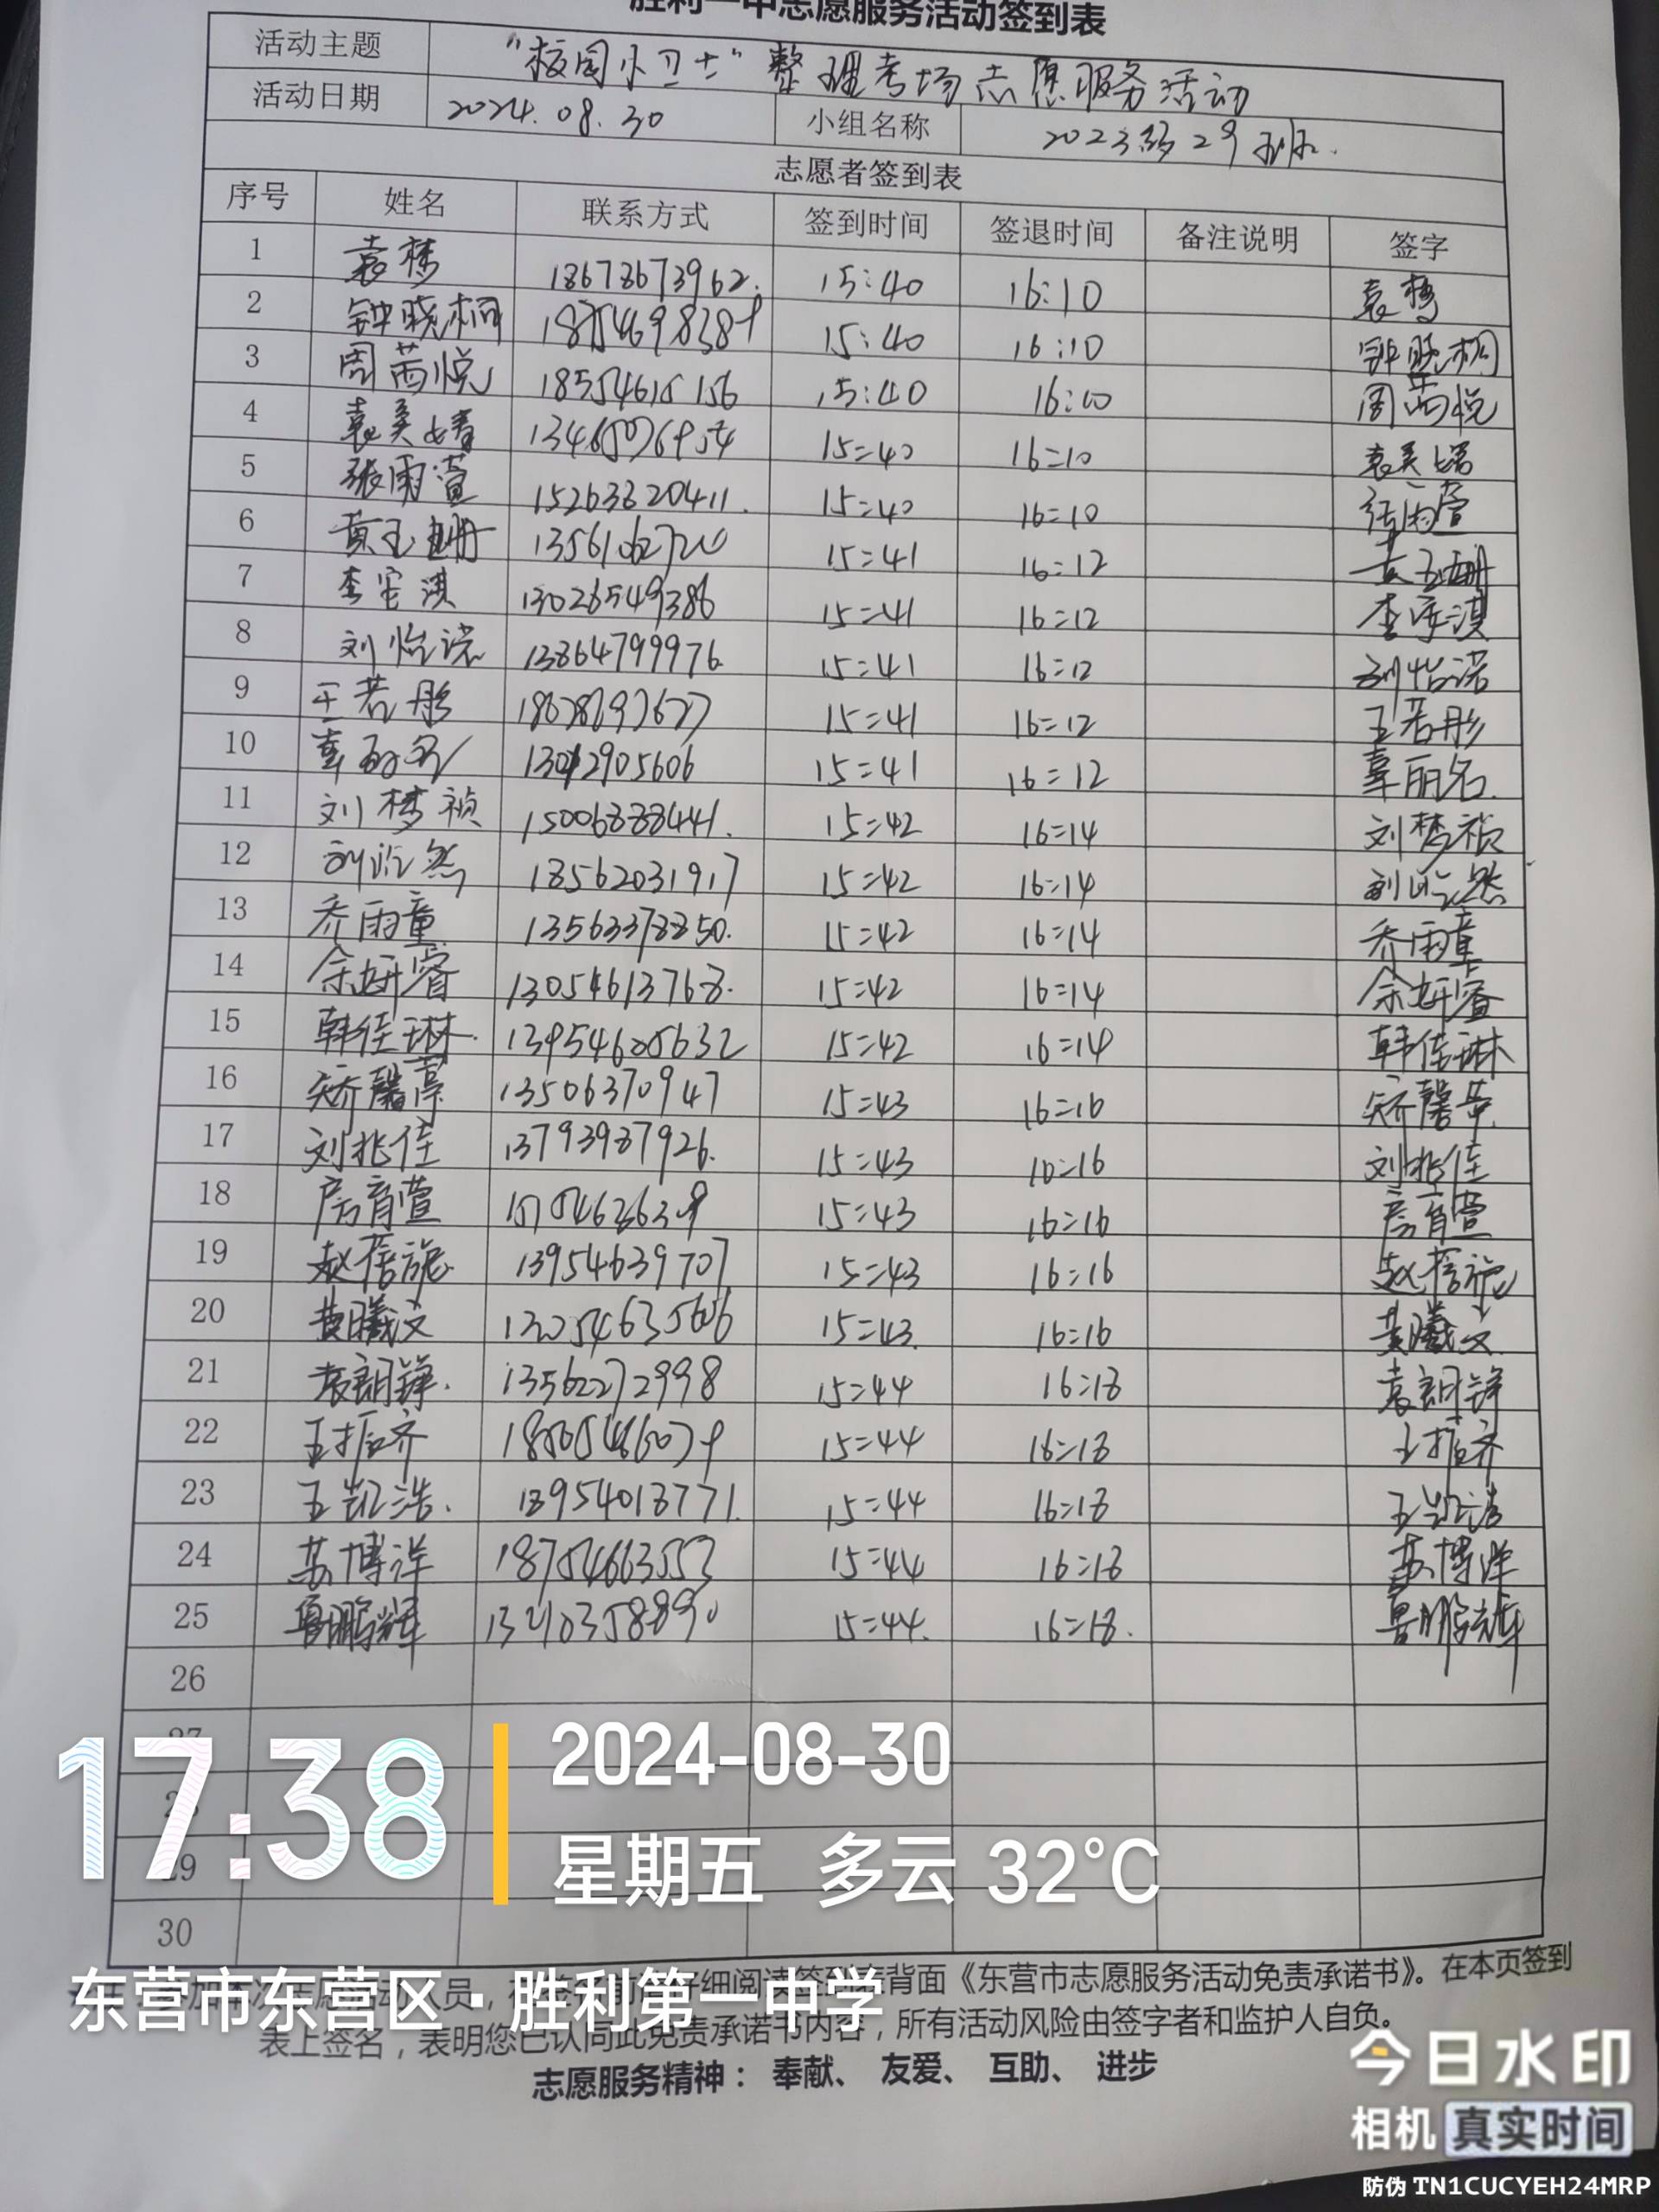 胜利一中志愿服务活动签到表
活动主题 "校园小卫士"整理考场志愿服务活动
活动日期 2024.08.30 小组名称 2023级29班.
志愿者签到表
序号 姓名 联系方式 签到时间 签退时间 备注说明 签字
1 袁梦 18678673962. 15:40 16:10 袁梦
2 钟晓桐 15:40 16:10 钟晓桐
3 周芮悦 18554615156 15:40 16:10 周芮悦
4 袁美婧 15=40 16=10 袁美婧
5 张雨萱 15263820411. 15=40 16=10 张雨萱
6 黄玉珊 15=41 16=12 黄玉珊
7 13026549386 15=41 16=12
8 刘怡诺 13864799976 15=41 16=12 刘怡诺
9 王若彤 15=41 16=12 王若彤
10 15=41 16=12
11 刘梦祯 15006888441. 15=42 16=14 刘梦祯
12 18562031917 15=42 16=14
13 乔雨童 13563378850. 15=42 16=14 乔雨童
14 余妍睿 13054613768. 15=42 16=14 余妍睿
15 韩佳琳. 13954605632 15=42 16=14 韩佳琳
16 13506370947 15=43 16=16
17 刘兆佳 13793987926. 15=43 16=16 刘兆佳
18 房育萱 15=43 16=16 房育萱
19 赵蓓旎 13954639707 15=43 16=16 赵蓓旎
20 黄曦文 15=43. 16=16 黄曦文
21 13562272998 15=44 16=18
22 王振齐 15=44 16=18 王振齐
23 王凯浩. 15=44 16=18 王凯浩
24 苏博洋 18754663553 15=44 16=18 苏博洋
25 鲁鹏辉 15=44. 16=18. 鲁鹏辉
26
27
28
29
30
17:38
2024-08-30
星期五 多云 32°C
东营市东营区·胜利第一中学
细阅读签到表背面《东营市志愿服务活动免责承诺书》。在本页签到
表上签名，表明您已认同此免责承诺书内容，所有活动风险由签字者和监护人自负。
志愿服务精神：奉献、友爱、互助、进步
今日水印
相机 真实时间
防伪 TN1CUCYEH24MRP